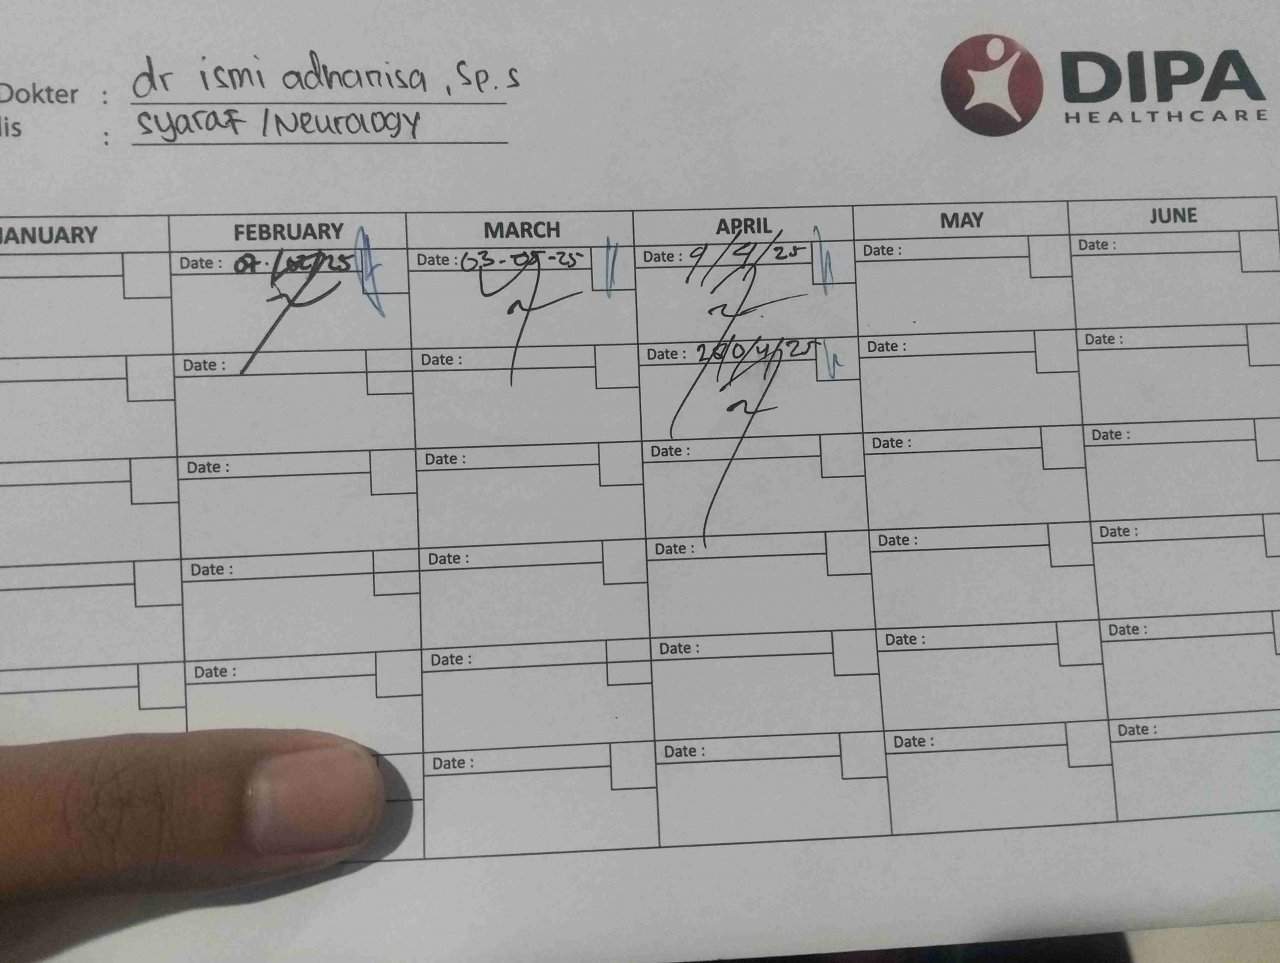 DIPA
HEALTHCARE
Dokter : dr ismi adhanisa, Sp.s
lis : syaraf / Neurology
JANUARY FEBRUARY MARCH APRIL MAY JUNE
Date : Date : 03- -25 Date : 9/4/25 Date : Date :
Date : Date : Date : Date : Date :
Date : Date : Date : Date : Date :
Date : Date : Date : Date : Date :
Date : Date : Date : Date : Date :
Date : Date : Date : Date :